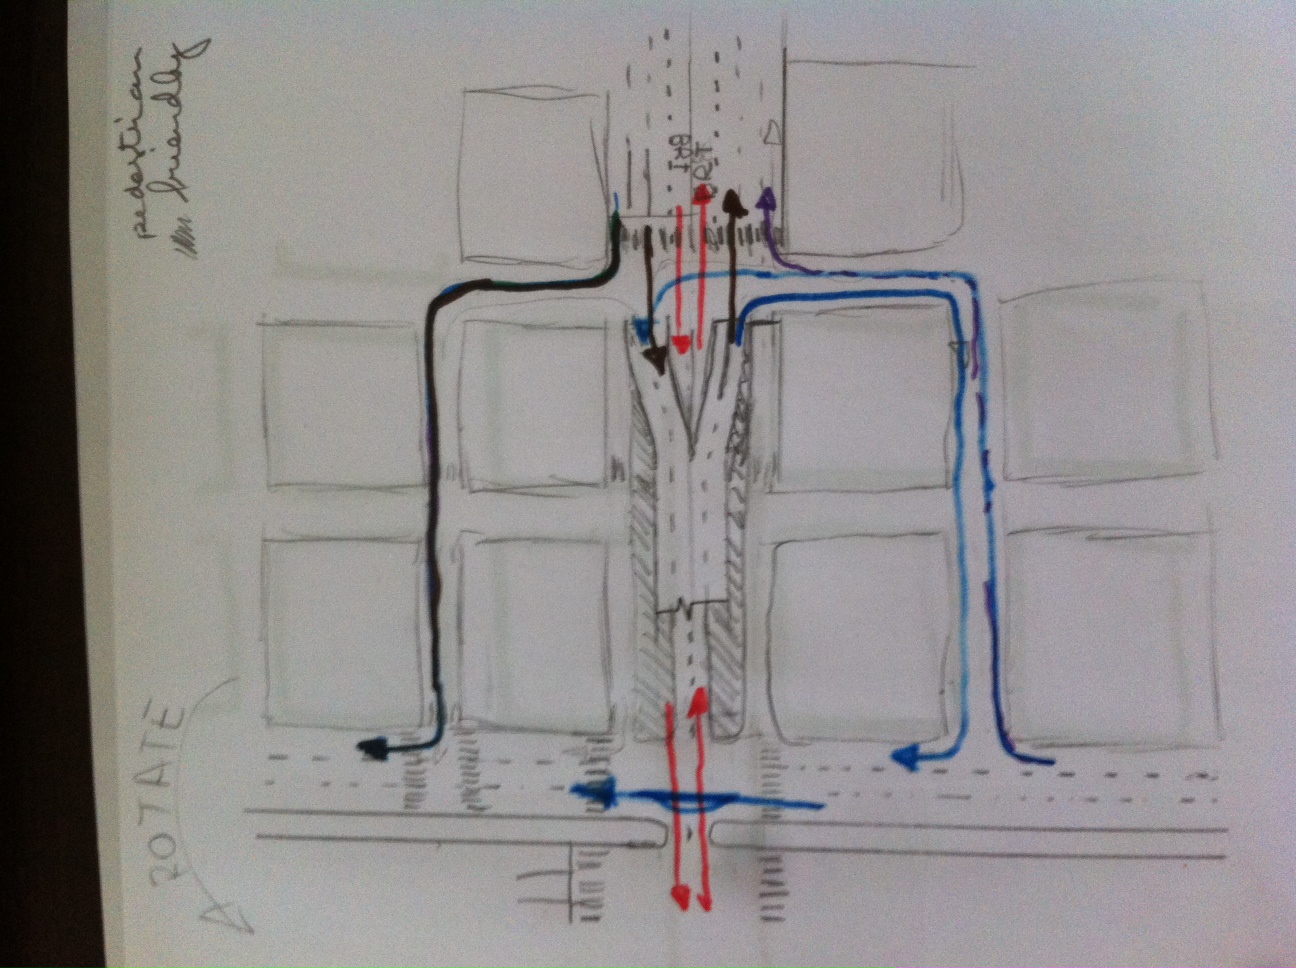 ROTATE
BRT
BRT
pedestrian
friendly